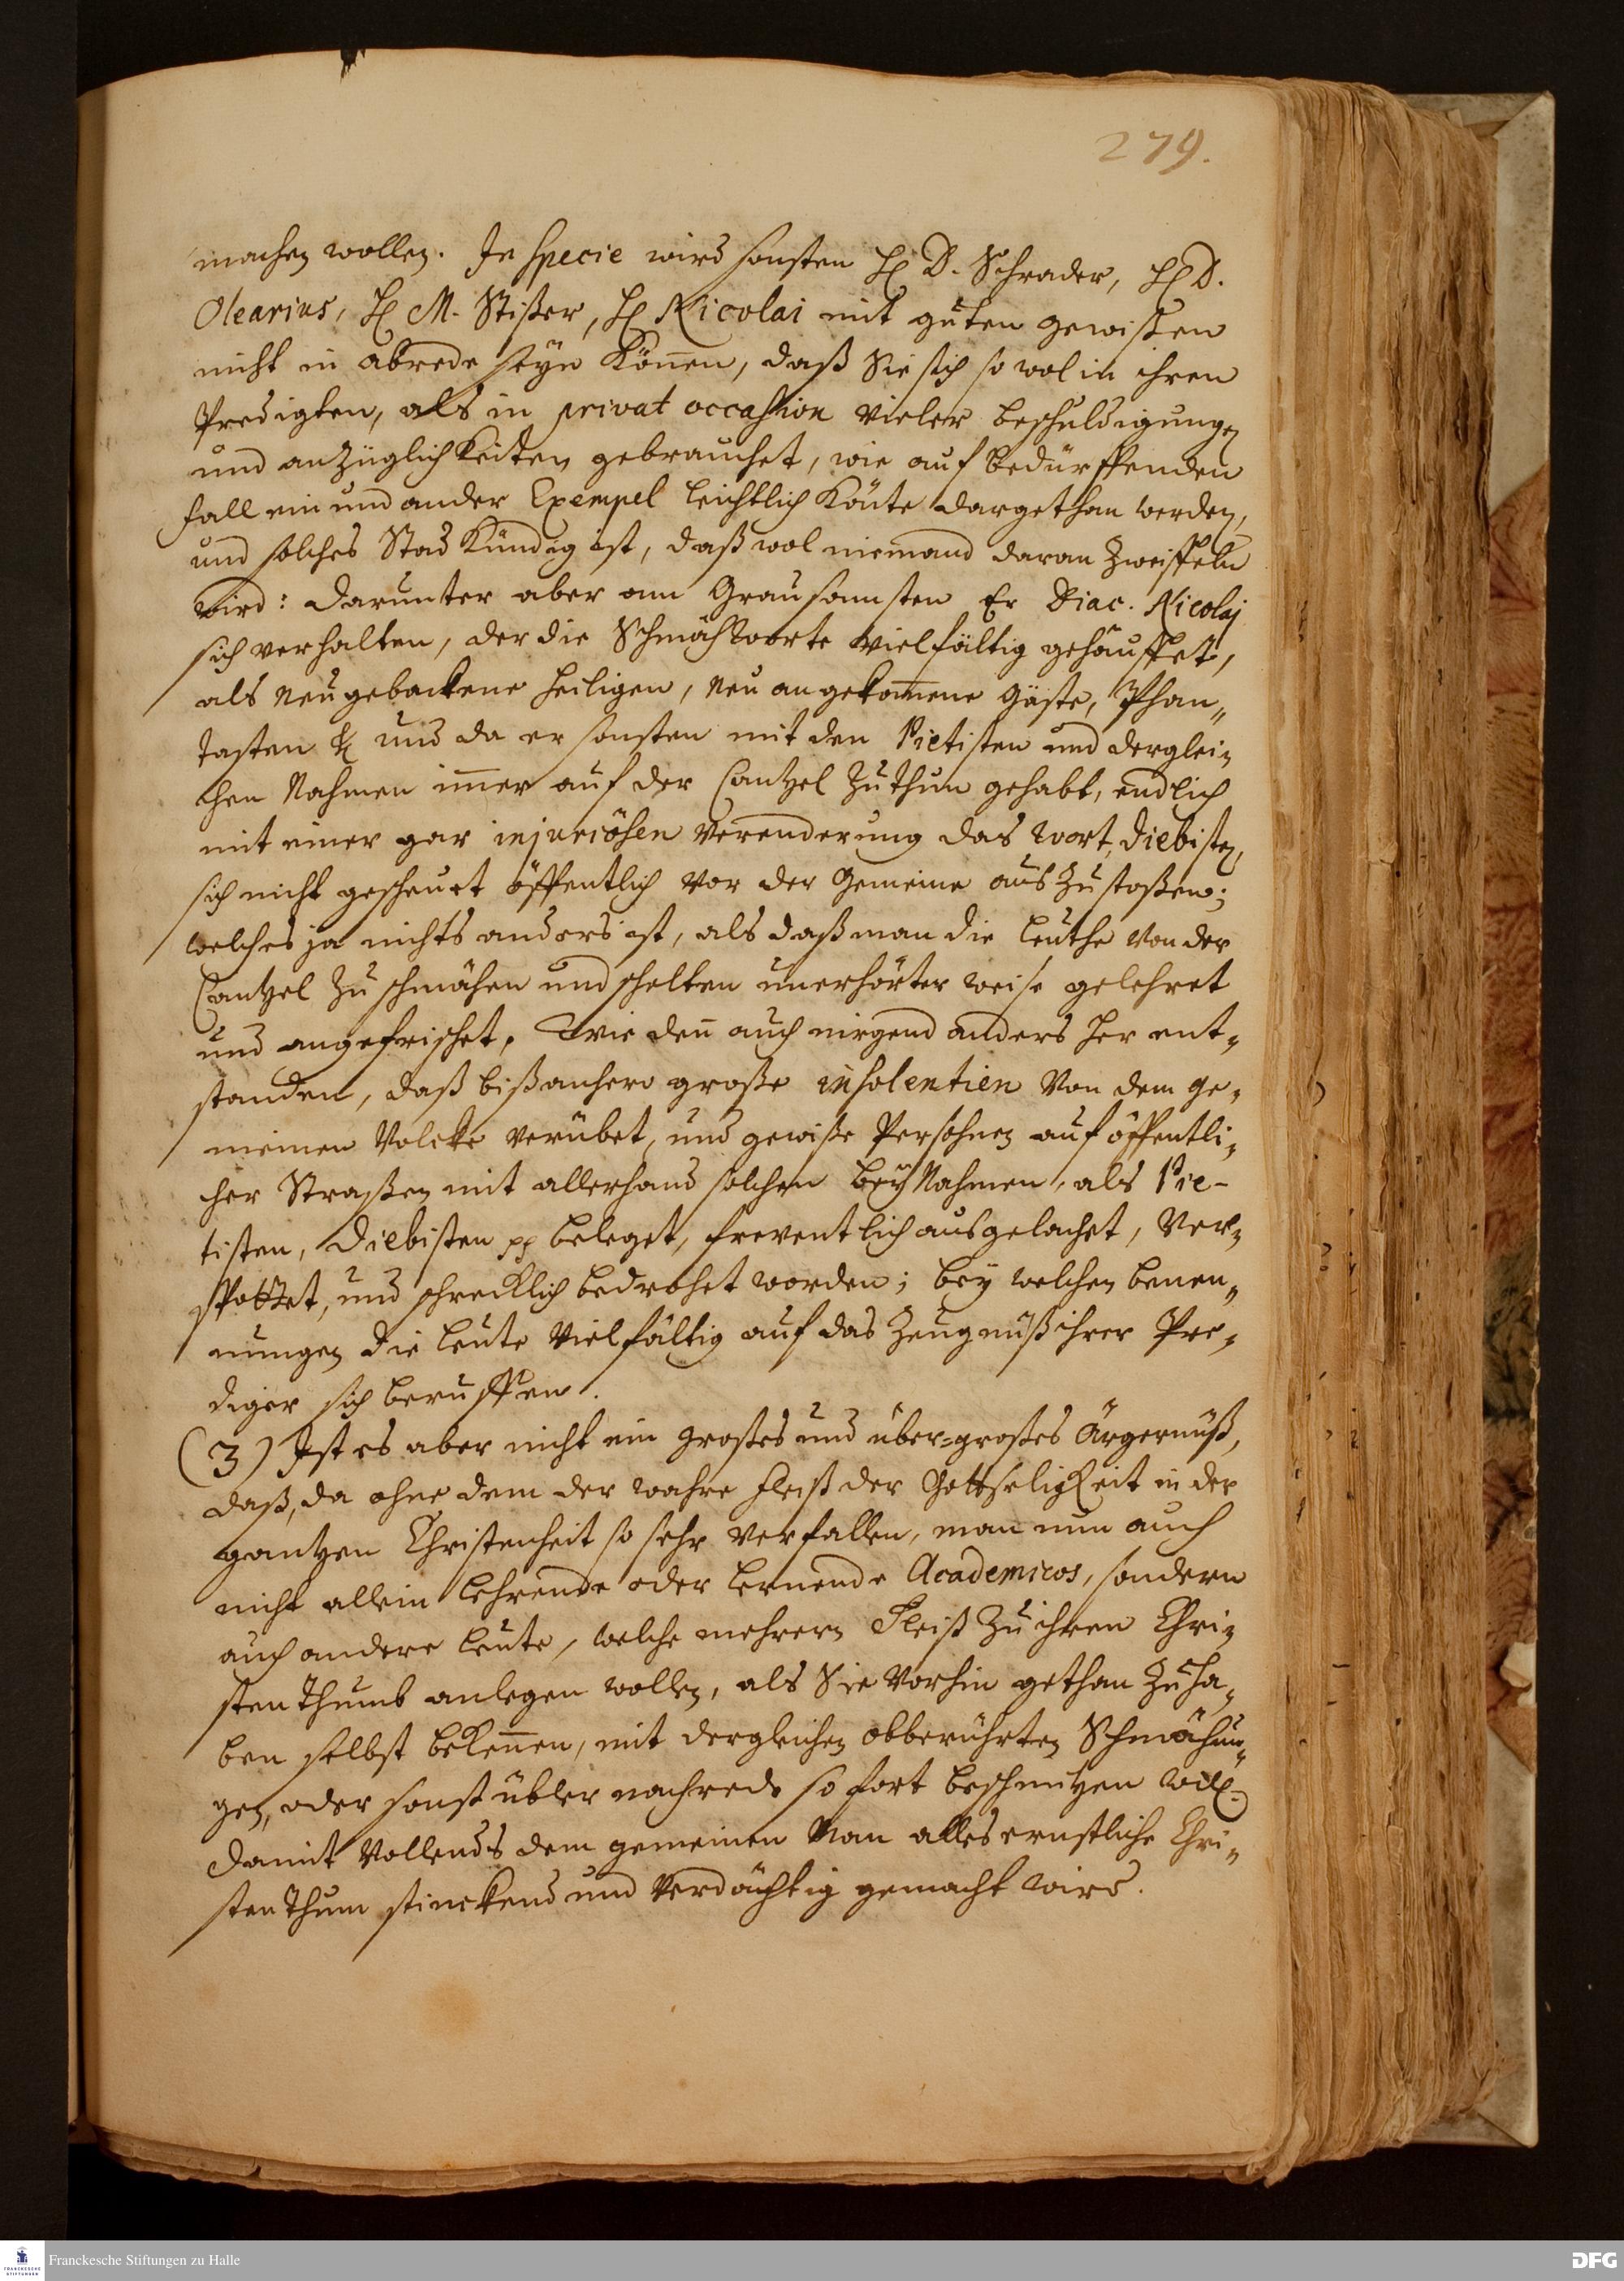 279.
machen wollen. In specie wird sonsten H. D. Schrader, H. D.
Olearius, H. M. Stißer, H. Nicolai mit guten gewißen
nicht in abrede seyn können, daß Sie sich so wol in ihren
Predigten, als in privat occasion vieler beschuldigungen
und anzüglichkeiten gebrauchet, wie auf bedürffenden
fall ein und ander Exempel leichtlich könte dargethan werden,
und solches Stad kündig ist, daß wol niemand daran zweiffeln
wird: darunter aber am Grausamsten Er Diac. Nicolai
sich verhalten, der die Schmähworte vielfältig gehäuffet,
als neugebackene heiligen, neu angekom̄ene Gäste, Phan„
tasten & und da er sonsten mit den Pietisten und derglei„
chen Nahmen im̄er auf der Cantzel zu thun gehabt, endlich
mit einer gar injuriösen verenderung das wort, diebisten,
sich nicht gescheuet öffentlich vor der Gemeine auszustoßen;
welches ja nichts anders ist, als daß man die Leuthe von der
Cantzel zu schmähen und schelten unerhörter weise gelehret
und angefrischet. Wie den̄ auch nirgend anders her ent„
standen, daß bißanhero große insolentien von dem ge„
meinen Volcke verübet, und gewiße Persohnen auf öffentli„
cher Straßen mit allerhand solchen beyNahmen, als Pie-
tisten, Diebisten pp beleget, freventlich ausgelachet, ver„
spottet, und schrecklich bedrohet worden; bey welchen benen„
nungen die Leute vielfältig auf das Zeugnüß ihrer Pre„
diger sich beruffen.
(3) Ist es aber nicht ein großes und über-großes Ärgernüß,
daß, da ohne dem der wahre fleiß der Gottseligkeit in der
gantzen Christenheit so sehr verfallen, man nun auch
nicht allein Lehrende oder Lernende Academicos, sondern
auch andere Leute, welche mehrern Fleiß zu ihren Chri„
stenthumb anlegen wollen, als Sie vorhin gethan zu ha„
ben selbst beken̄en, mit dergleichen obberührten Schmähun„
gen, oder sonst übler nachrede so fort beschmitzen will.
damit vollends dem gemeinen Man alles ernstliche Chri„
stenthum stinckend und verdächtig gemacht wird.
Franckesche Stiftungen zu Halle
FRANCKESCHE STIFTUNGEN
DFG